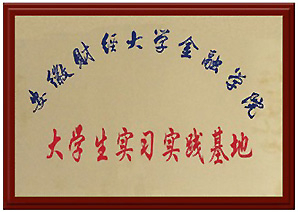 安徽财经大学金融学院
大学生实习实践基地